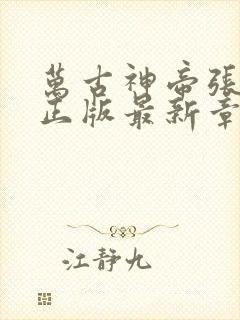 萬古神帝張
正版最新章
江靜九